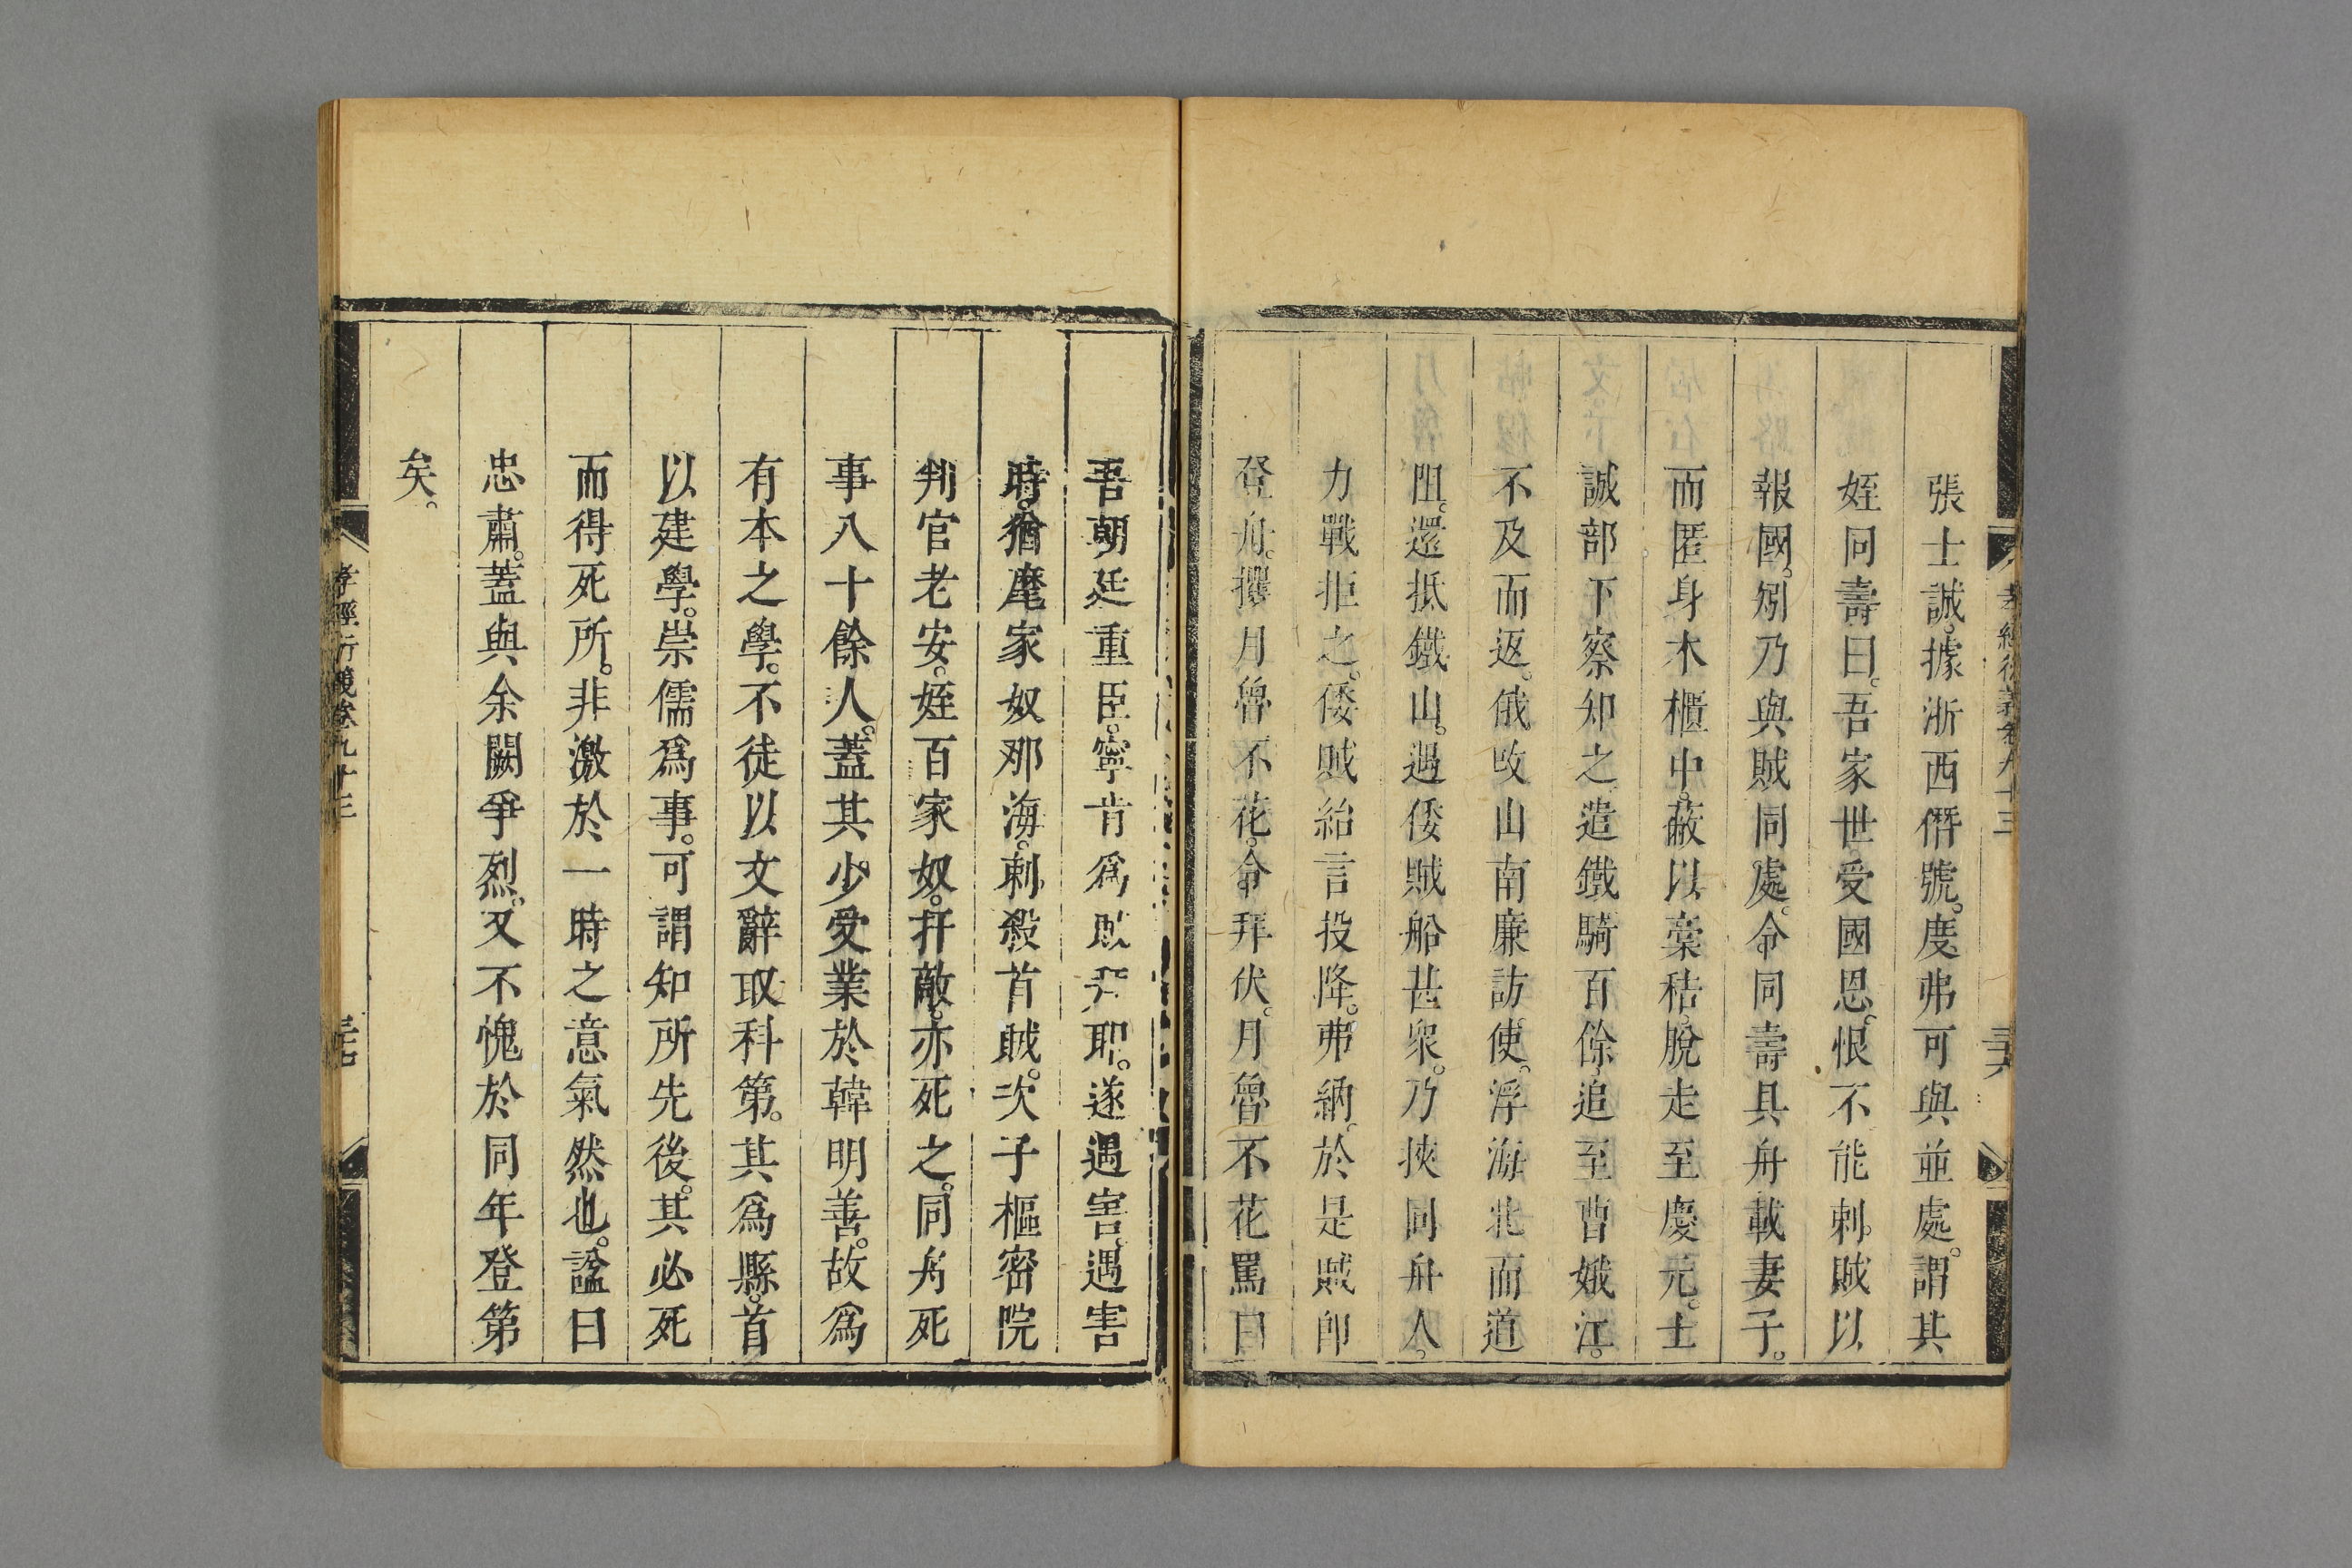 張士誠。據浙西僭號。度弗可與並處。謂其
姪同壽曰。吾家世受國恩。恨不能刺賊以
報國。矧乃與賊同處。令同壽具舟載妻子。
而匿身木櫃中。蔽以藁秸。脫走至慶元。士
誠部下察知之。遣鐵騎百餘。追至曹娥江。
不及而返。俄改山南廉訪使。浮海北而道
阻。還抵鐵山。遇倭賊船甚衆。乃挾同舟人。
力戰拒之。倭賊紿言投降。弗納。於是賊即
登舟。攫月魯不花。令拜伏。月魯不花罵曰
孝經衍義卷九十三
三六
吾朝廷重臣。寧肯爲賊拜耶。遂遇害。遇害
時。猶麾家奴那海。刺殺首賊。次子樞密院
判官老安。姪百家奴。扞敵。亦死之。同舟死
事八十餘人。蓋其少受業於韓明善。故爲
有本之學。不徒以文辭取科第。其爲縣。首
以建學。崇儒爲事。可謂知所先後。其必死
而得死所。非激於一時之意氣然也。諡曰
忠肅。蓋與余闕爭烈。又不愧於同年登第
矣。
孝經衍義卷九十三